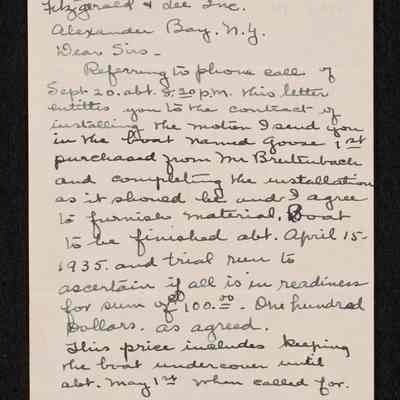 Fitzgerald & Lee Inc.
Alexander Bay. N.Y.
Dear Sirs -
Referring to phone call of
Sept 20. abt. 8.30 p.m. this letter
entitles you to the contract of
installing the motor I send you
in the boat named Goose 1st
purchased from Mr Breitenbach
and completing the installation
as it should be and I agree
to furnish material. Boat
to be finished abt. April 15-
1935. and trial run to
ascertain if all is in readiness
for sum of 100.00. One hundred
Dollars. as agreed.
This price includes keeping
the boat undercover until
abt. May 1st when called for.